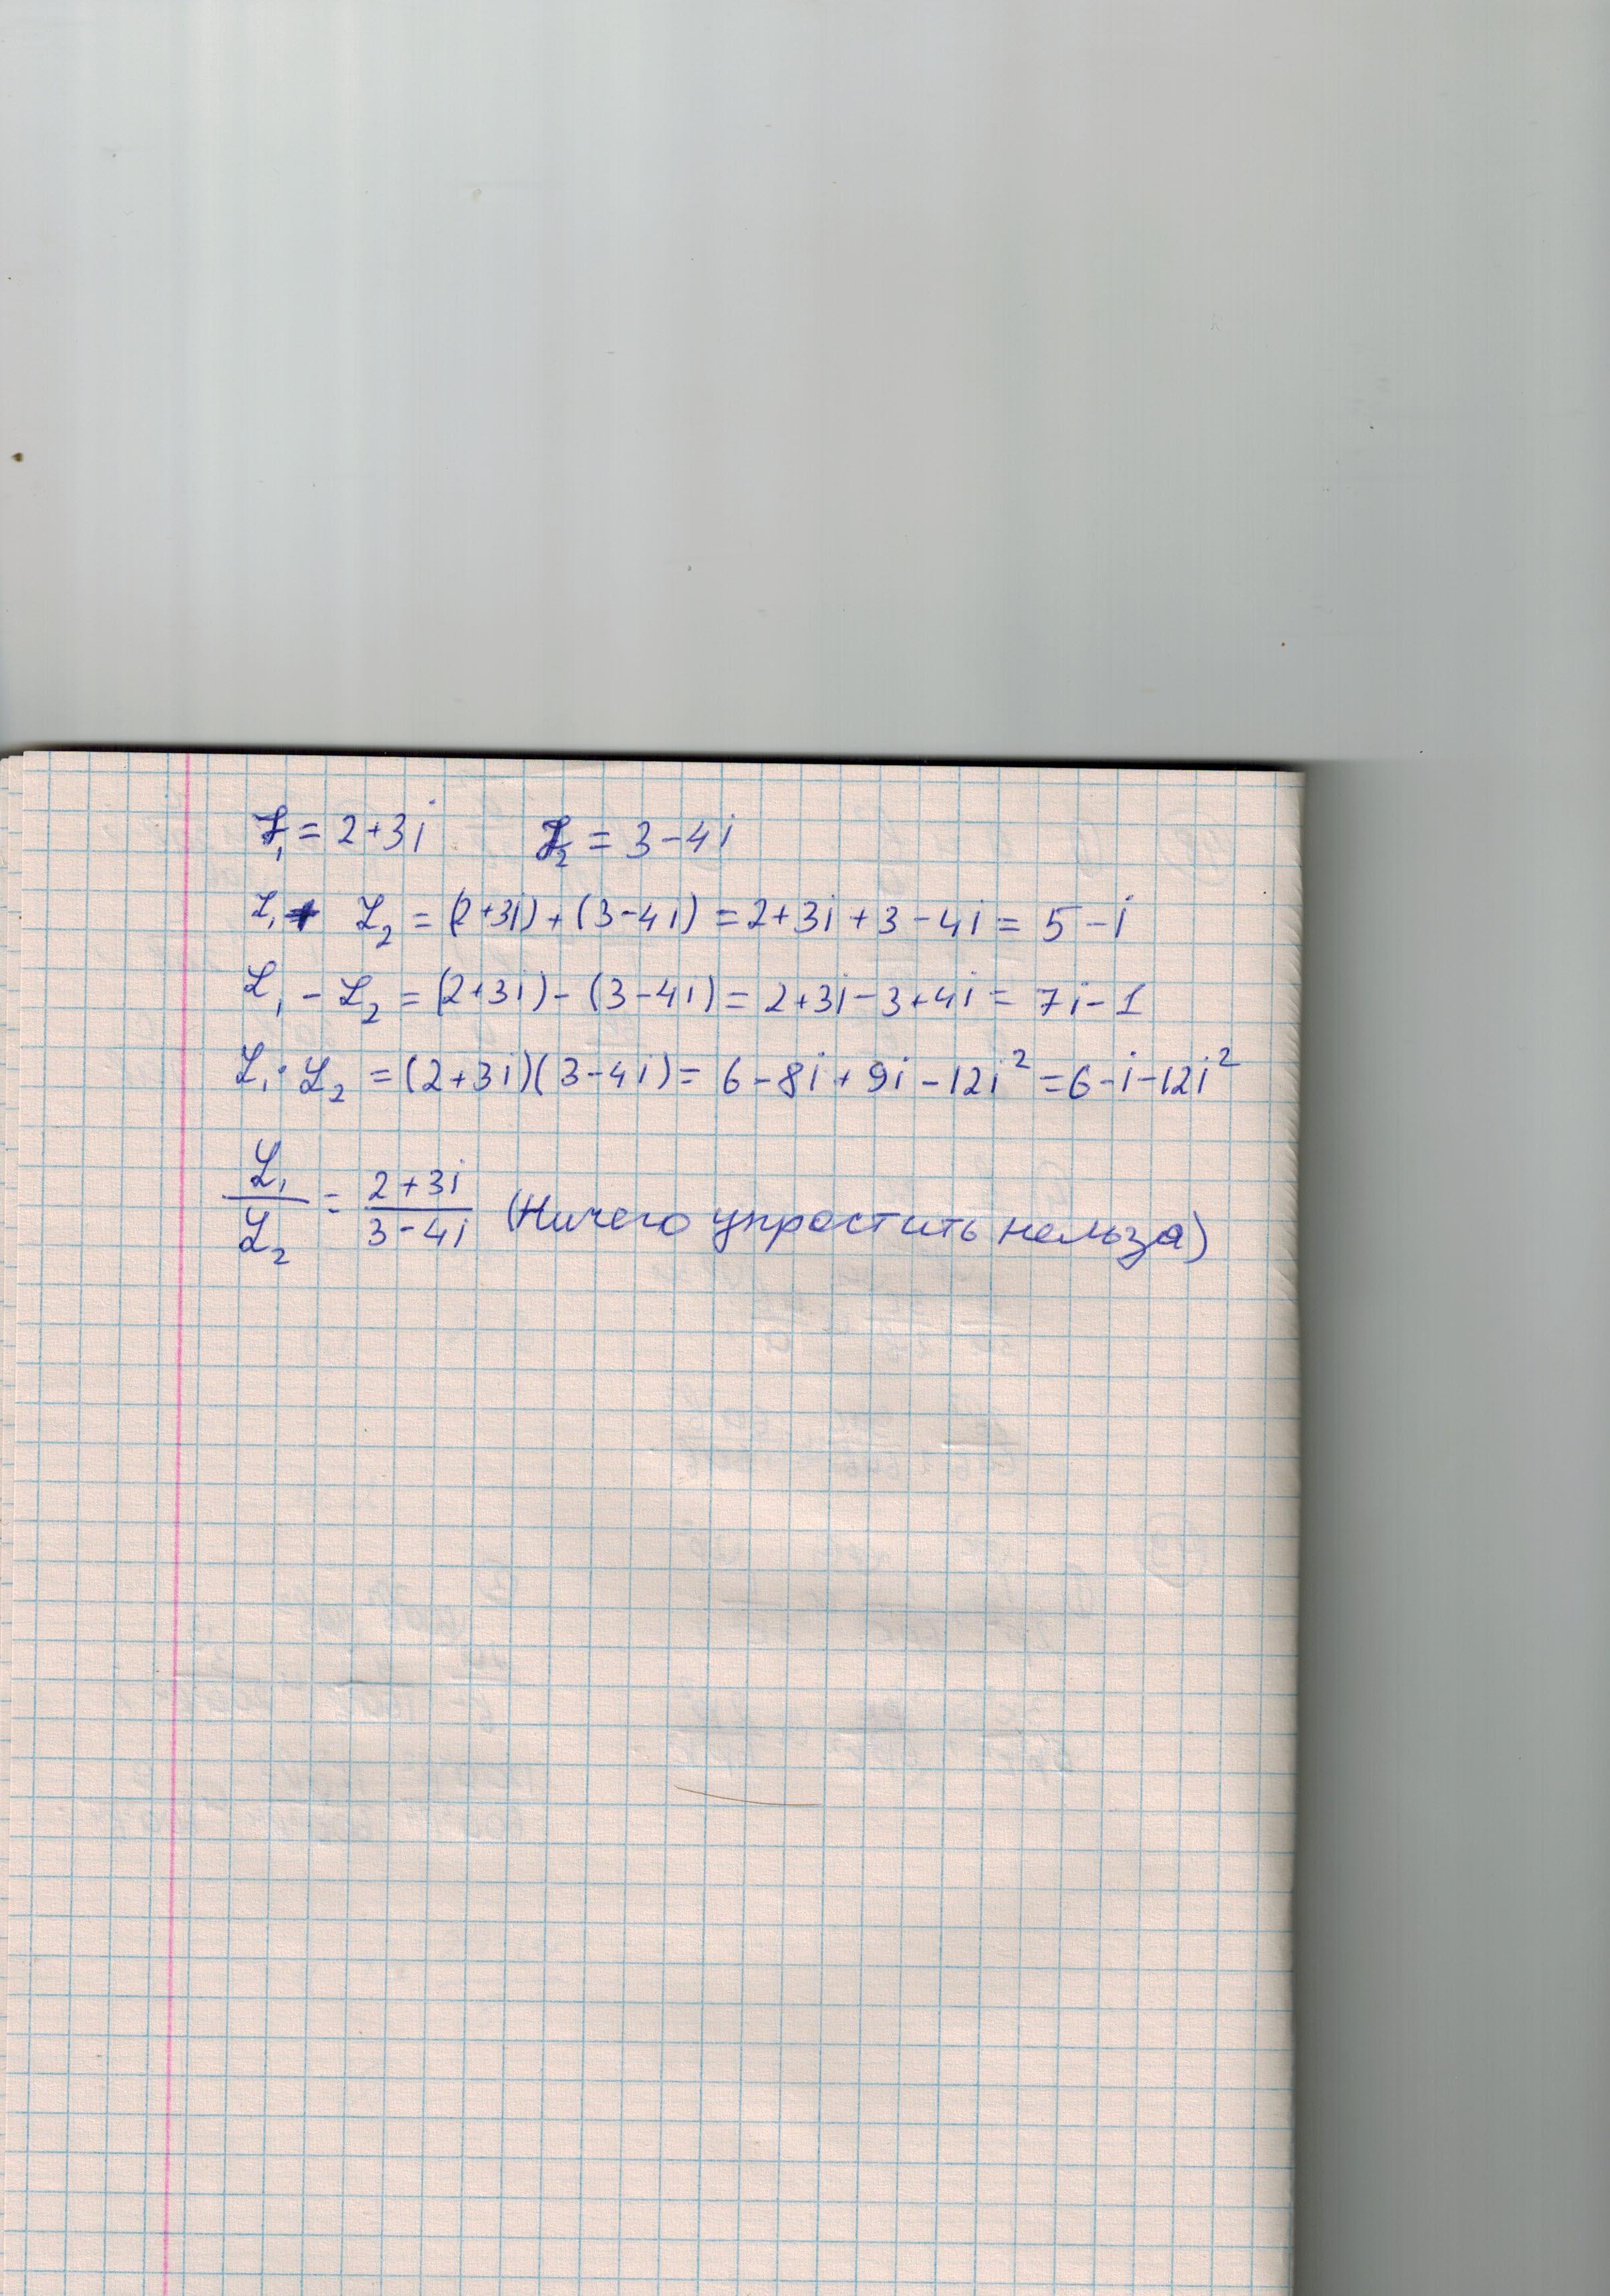 Z₁ = 2+3i Z₂ = 3-4i
Z₁ + Z₂ = (2+3i) + (3-4i) = 2+3i+3-4i = 5-i
Z₁ - Z₂ = (2+3i) - (3-4i) = 2+3i-3+4i = 7i-1
Z₁ · Z₂ = (2+3i)(3-4i) = 6-8i+9i-12i² = 6-i-12i²
Z₁/Z₂ = (2+3i)/(3-4i) (Ничего упростить нельза)